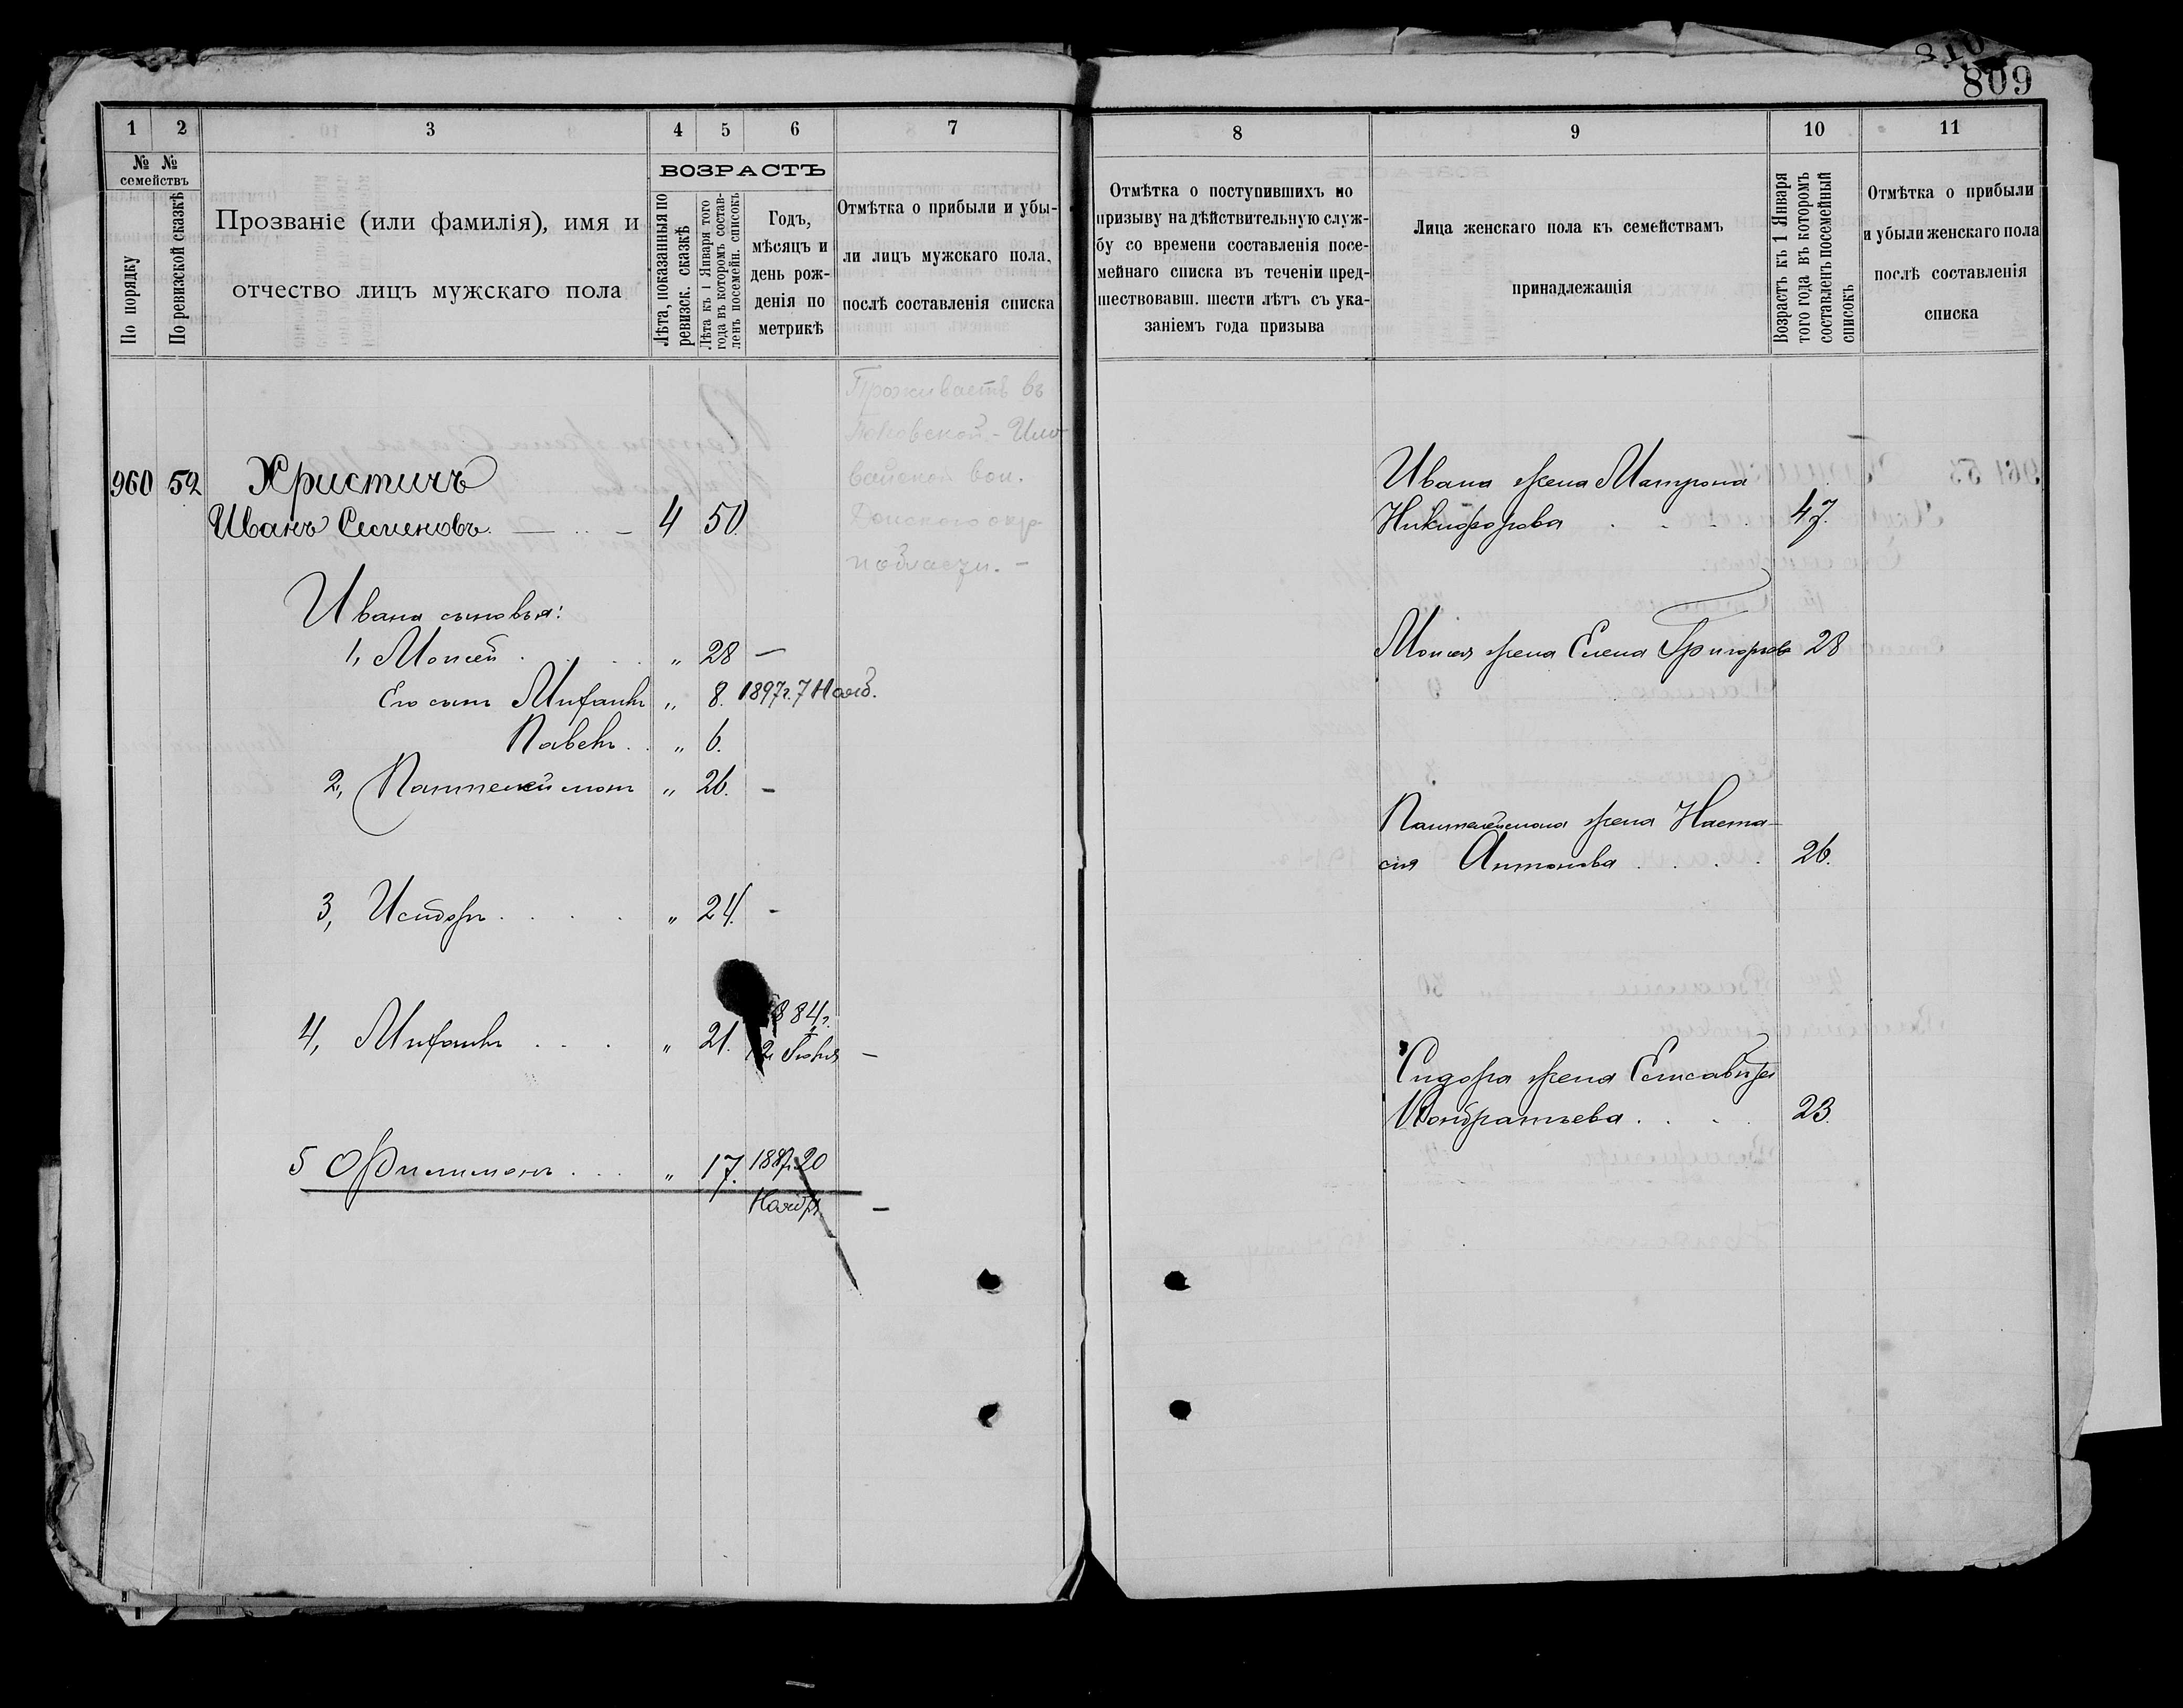 810
809
1 2 3 4 5 6 7
№ № семействъ
По порядку
По ревизской сказкѣ
Прозваніе (или фамилія), имя и
отчество лицъ мужскаго пола
ВОЗРАСТЪ
Лѣта, показанныя по
ревизск. сказкѣ
Лѣта къ 1 Января того
года въ которомъ состав-
ленъ посемейн. списокъ
Годъ,
мѣсяцъ и
день рож-
денія по
метрикѣ
Отмѣтка о прибыли и убы-
ли лицъ мужскаго пола,
послѣ составленія списка
960 52 Христичъ
Иванъ Семеновъ. 4 50
Проживаетъ въ
вайской вол.
Донского окр.
Ивана сыновья:
1, Моисей . . . „ 28 —
Его сынъ Митфанъ „ 8. 1897г. 7 Нояб.
Павелъ . . „ 6.
2, Пантелеймонъ „ 26. -
3, Исидоръ . . . . „ 24. -
4, Митфанъ . . . „ 21. 1884г.
12 Іюня —
5 Филимонъ . . . „ 17. 1887г. 20
Ноября —
8 9 10 11
Отмѣтка о поступившихъ по
призыву на дѣйствительную служ-
бу со времени составленія посе-
мейнаго списка въ теченіи пред-
шествовавш. шести лѣтъ съ ука-
заніемъ года призыва
Лица женскаго пола къ семействамъ
принадлежащія
Возрастъ къ 1 Января
того года въ которомъ
составленъ посемейный
списокъ
Отмѣтка о прибыли
и убыли женскаго пола
послѣ составленія
списка
Ивана жена Матрона
Никифорова . . . . 47.
Моисея жена Елена Григорьева 28
Пантелеймона жена Наста-
сия Антонова . . . . 26.
Сидора жена Елисавета
Кондратьева . . . . 23.